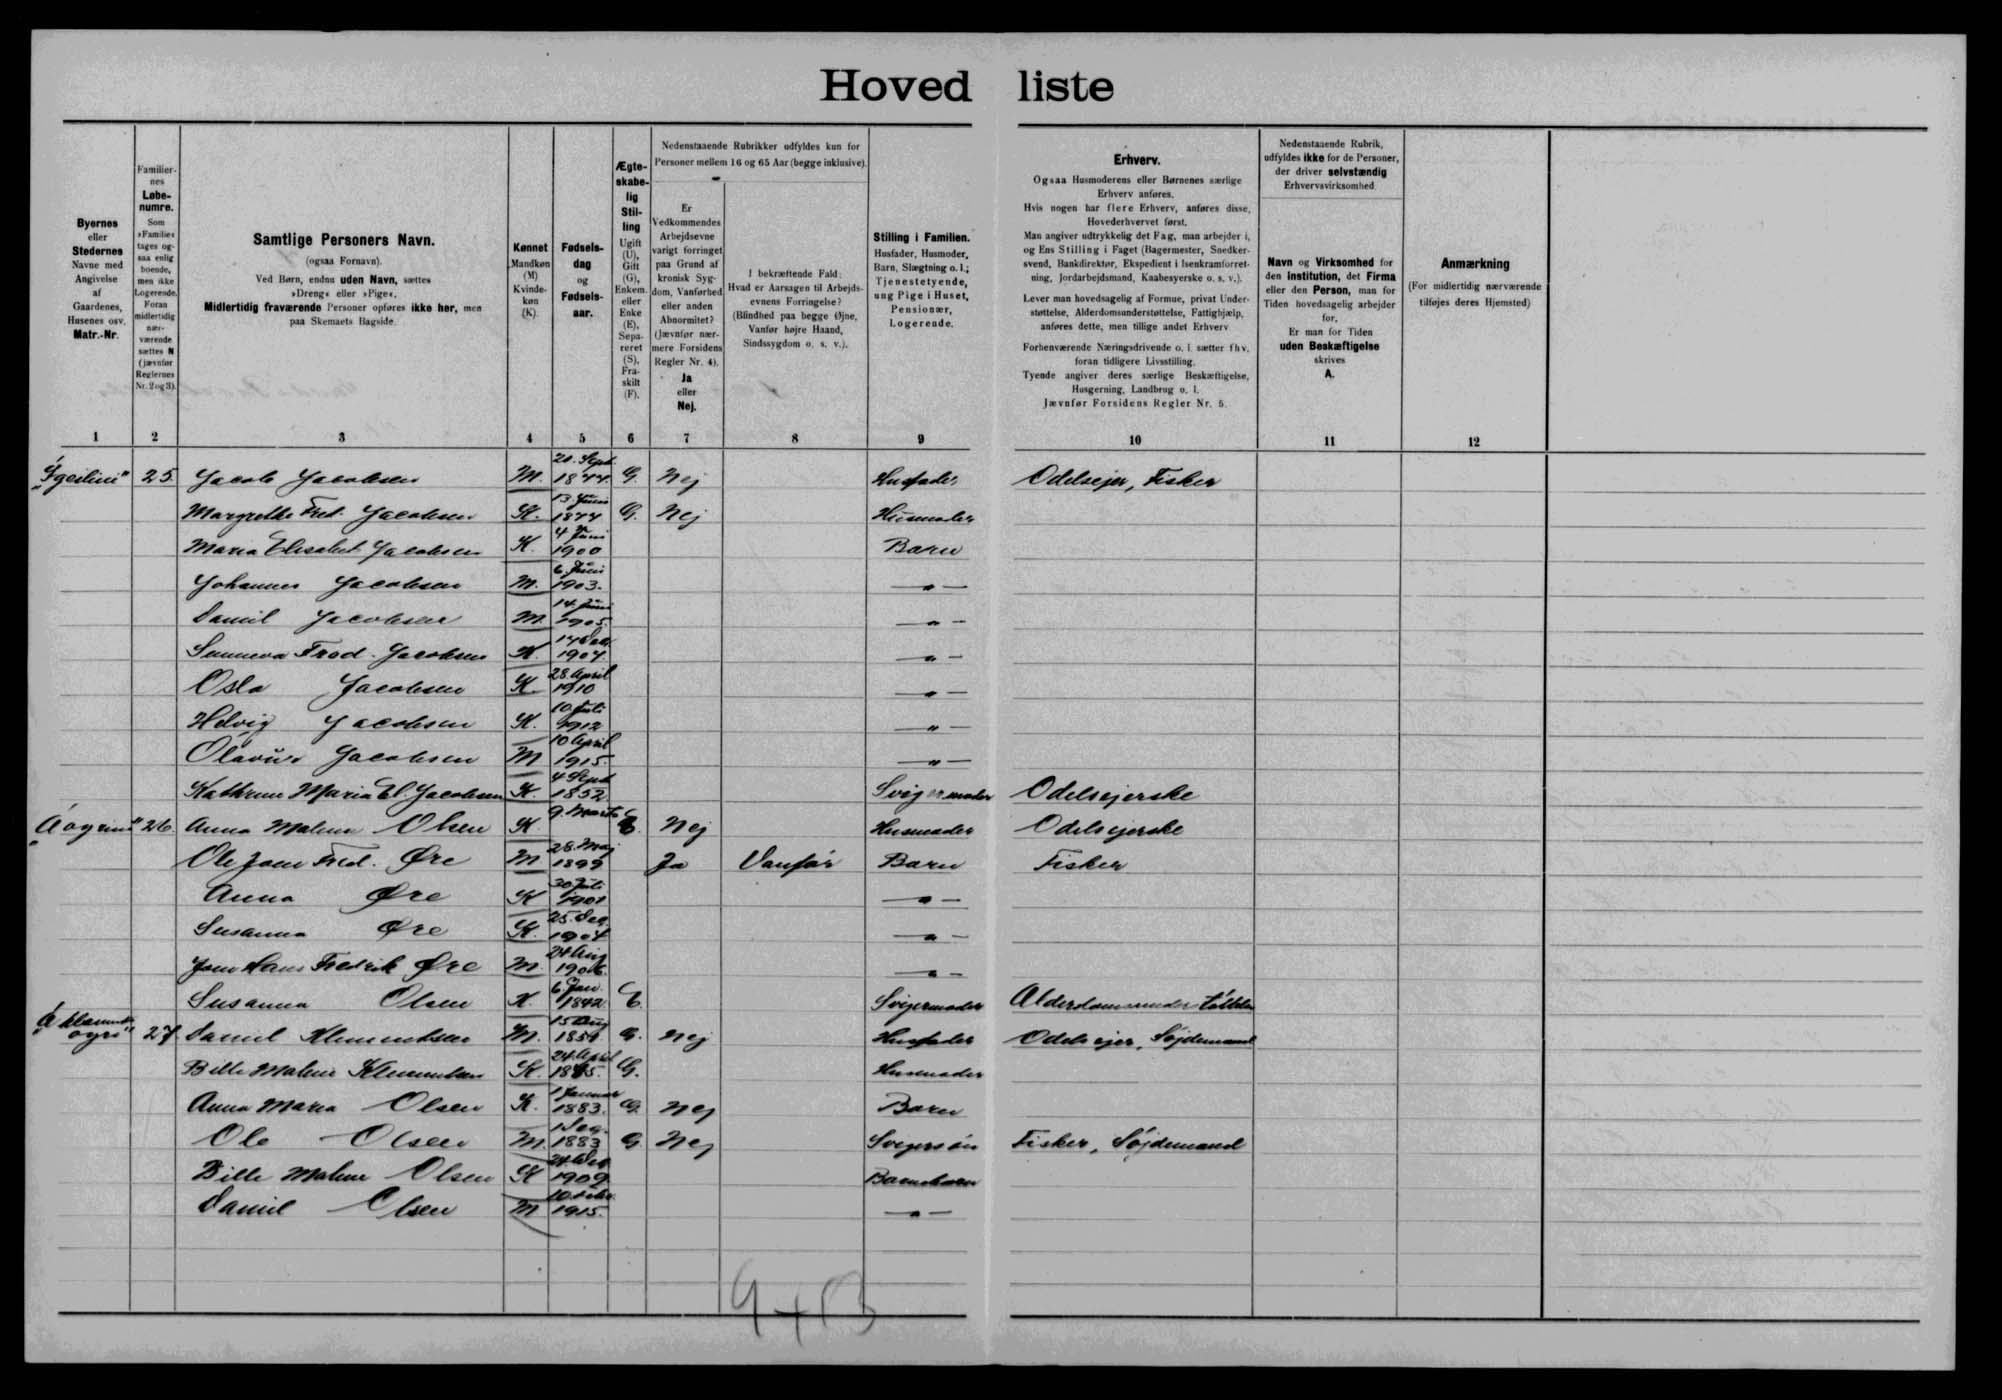 Hovedliste
Byernes
eller
Stedernes
Navne med
Angivelse
af
Gaardenes,
Husenes osv.
Matr.-Nr.
Familier-
nes
Løbe-
numre.
Som
»Familie«
tages og-
saa enlig
boende,
men ikke
Logerende.
Foran
midlertidig
nær-
værende
sættes N
(jævnfør
Reglernes
Nr. 2 og 3).
Samtlige Personers Navn.
(ogsaa Fornavn).
Ved Børn, endnu uden Navn, sættes
»Dreng« eller »Pige«.
Midlertidig fraværende Personer opføres ikke her, men
paa Skemaets Bagside.
Kønnet
Mandkøn
(M)
Kvinde-
køn
(K).
Fødsels-
dag
og
Fødsels-
aar.
Ægte-
skabe-
lig
Stil-
ling
Ugift
(U),
Gift
(G),
Enkem.
eller
Enke
(E),
Sepa-
reret
(S),
Fra-
skilt
(F).
Nedenstaaende Rubrikker udfyldes kun for
Personer mellem 16 og 65 Aar (begge inklusive).
Er
Vedkommendes
Arbejdsevne
varigt forringet
paa Grund af
kronisk Syg-
dom, Vanførhed
eller anden
Abnormitet?
(Jævnfør nær-
mere Forsidens
Regler Nr. 4).
Ja
eller
Nej.
I bekræftende Fald:
Hvad er Aarsagen til Arbejds-
evnens Forringelse?
(Blindhed paa begge Øjne,
Vanfør højre Haand,
Sindssygdom o. s. v.).
Stilling i Familien.
Husfader, Husmoder,
Barn, Slægtning o. l.;
Tjenestetyende,
ung Pige i Huset,
Pensionær,
Logerende.
Erhverv.
Ogsaa Husmoderens eller Børnenes særlige
Erhverv anføres.
Hvis nogen har flere Erhverv, anføres disse,
Hovederhvervet først.
Man angiver udtrykkelig det Fag, man arbejder i,
og Ens Stilling i Faget (Bagermester, Snedker-
svend, Bankdirektør, Ekspedient i Isenkramforret-
ning, Jordarbejdsmand, Kaabesyerske o. s. v.).
Lever man hovedsagelig af Formue, privat Under-
støttelse, Alderdomsunderstøttelse, Fattighjælp,
anføres dette, men tillige andet Erhverv
Forhenværende Næringsdrivende o. l. sætter fhv.
foran tidligere Livsstilling.
Tyende angiver deres særlige Beskæftigelse,
Husgerning, Landbrug o. l.
Jævnfør Forsidens Regler Nr. 5.
Nedenstaaende Rubrik,
udfyldes ikke for de Personer,
der driver selvstændig
Erhvervsvirksomhed
Navn og Virksomhed for
den Institution, det Firma
eller den Person, man for
Tiden hovedsagelig arbejder
for.
Er man for Tiden
uden Beskæftigelse
skrives
A.
Anmærkning
(For midlertidig nærværende
tilføjes deres Hjemsted)
1 2 3 4 5 6 7 8 9 10 11 12
25 Jacob Jacobsen M. 20. Sept. 1877. G. Nej Husfader Odelsejer, Fisker
Margrethe Fred. Jacobsen K. 13. Juni 1877 G. Nej Husmoder
Maria Elisabet Jacobsen K. 4 Juni 1900 Barn
Johannes Jacobsen M. 6. Juni 1903. — " —
Daniel Jacobsen M. 14. Juni 1905. — " —
Sunneva Fred. Jacobsen K. 1907 — " —
Osla Jacobsen K. 28. April 1910 — " —
Helvig Jacobsen K. 10. Juli 1912 — " —
Olavur Jacobsen M 10 April 1915. — " —
Kathrine Maria El. Jacobsen K. 4 Sept 1852 Svigermoder Odelsejerske
26 Anna Malene Olsen K 9. Marts E. Nej Husmoder Odelsejerske
Ole Jone Fred. Øre M 28. Maj 1899 Ja Vanför Barn Fisker
Anna Øre K 30 Juli 1901 — " —
Susanna Øre K. 25. Dec. 1904 — " —
Jone Hans Fredrik Øre M. 24 Aug 1906. — " —
Susanna Olsen K. 6. Jan. 1842 E. Svigermoder
27. Daniel Klementsen M. 15 Aug G. Nej Husfader Odelsejer, Sløjdemand
Bille Malene Klementsen K. 24. April G. Husmoder
Anna Maria Olsen K. 1 Januar 1883. G. Nej Barn
Ole Olsen M. 1883 G. Nej Svigersön Fisker, Sløjdemand
Bille Malene Olsen K 1909. Barnebarn
Daniel Olsen M 1915. — " —
9+13